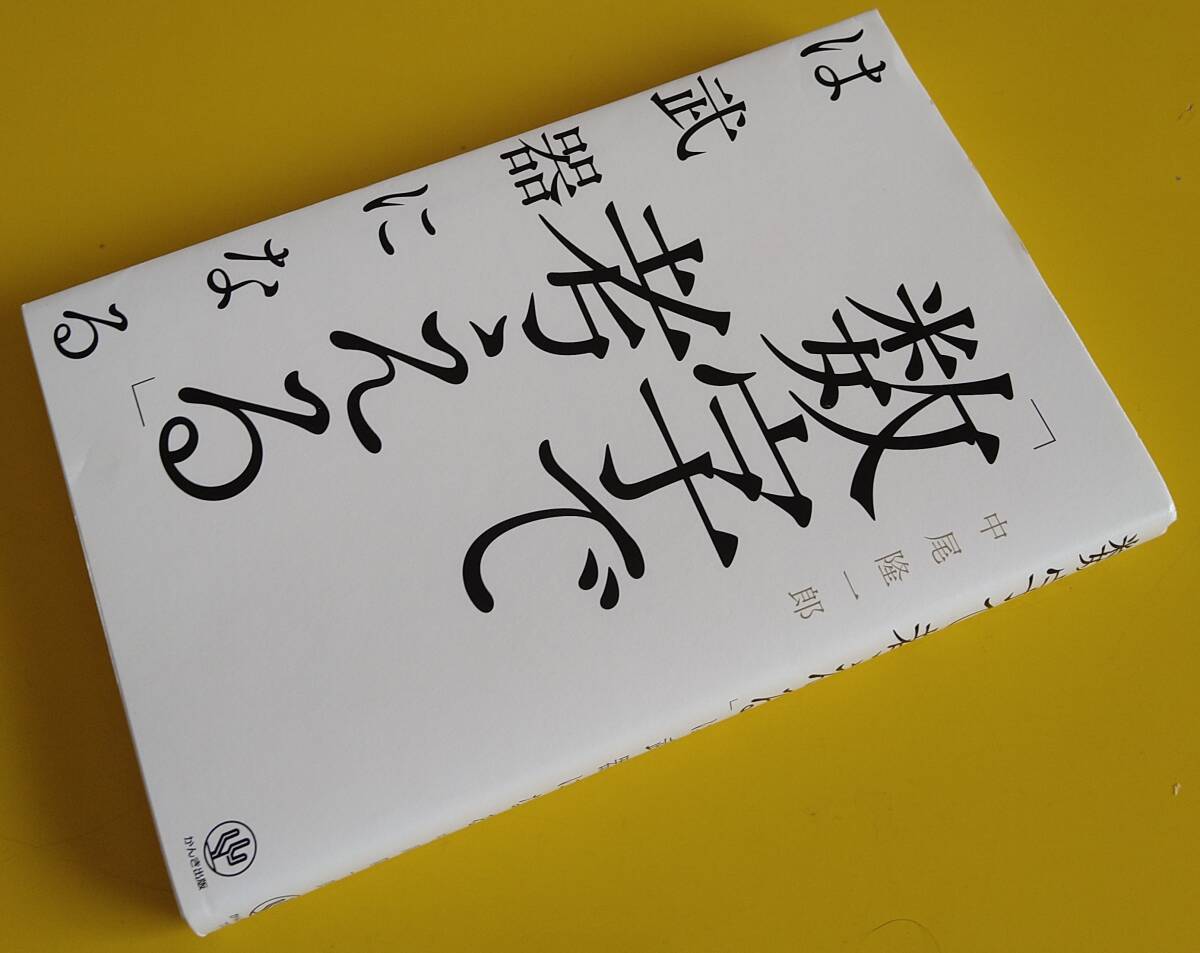 「数字で
考える」
は武器になる
中尾隆一郎
かんき出版
数字で考える」は武器になる